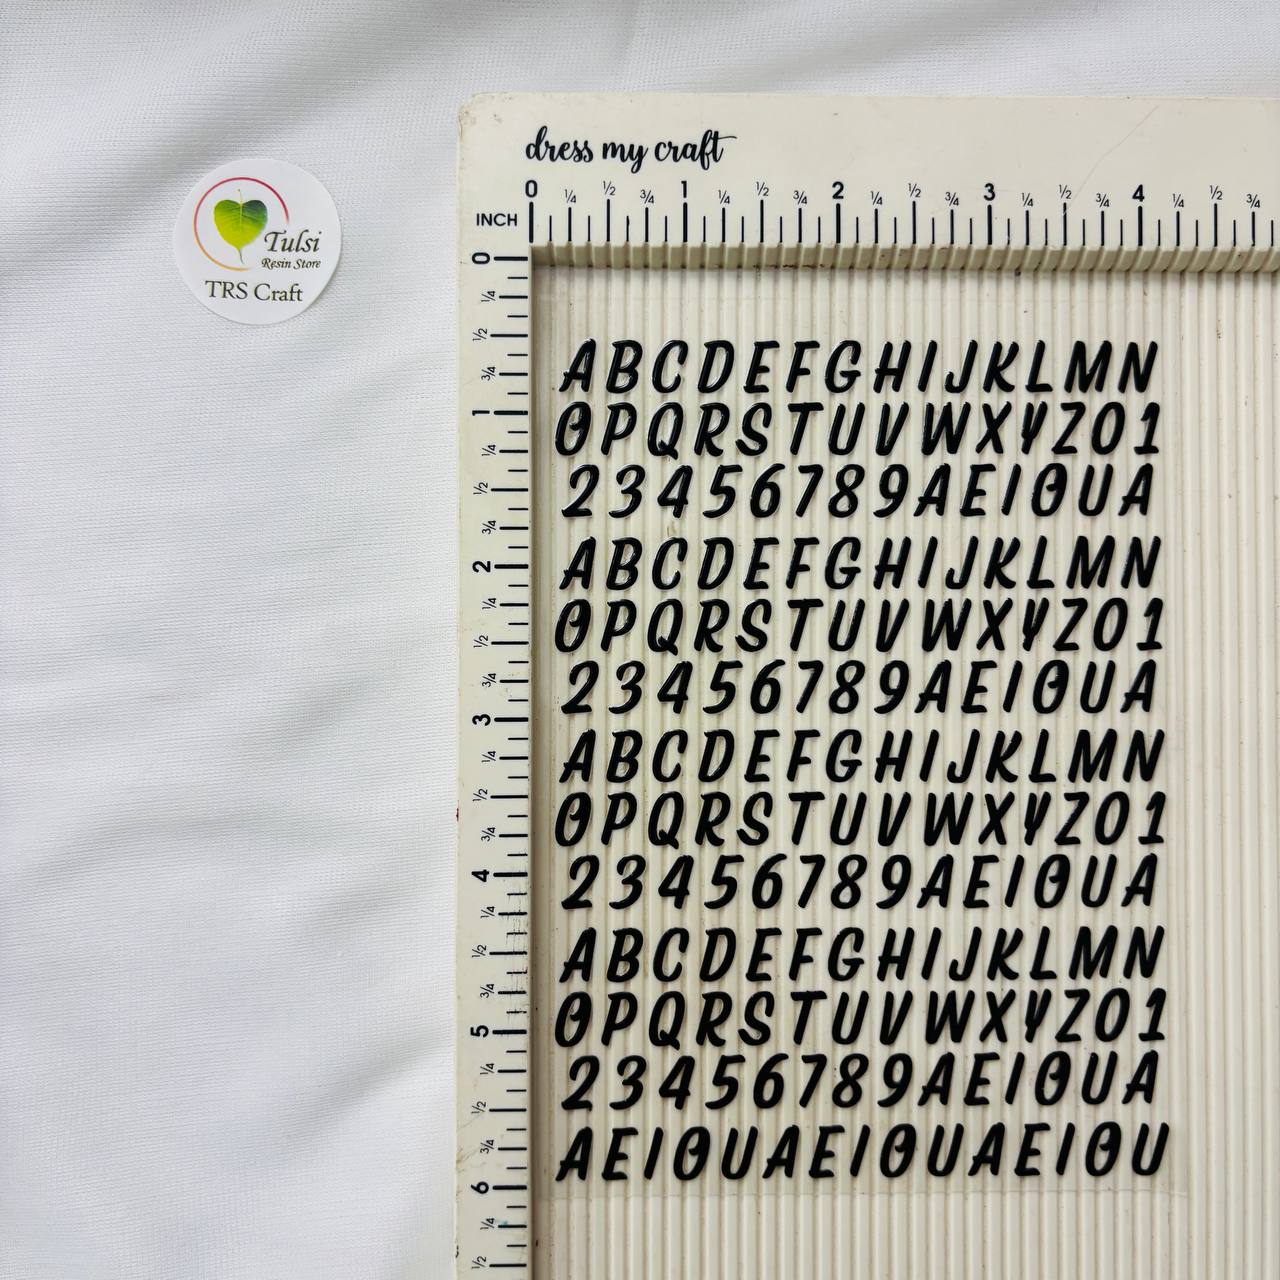 dress my craft
0 ¼ ½ ¾ 1 ¼ ½ ¾ 2 ¼ ½ ¾ 3 ¼ ½ ¾ 4 ¼ ½ ¾
INCH
Tulsi
Resin Store
TRS Craft
0 ¼ ½ ¾ 1 ¼ ½ ¾ 2 ¼ ½ ¾ 3 ¼ ½ ¾ 4 ¼ ½ ¾ 5 ¼ ½ ¾ 6 ¼ ½
ABCDEFGHIJKLMN
OPQRSTUVWXYZ01
23456789AEIOUA
ABCDEFGHIJKLMN
OPQRSTUVWXYZ01
23456789AEIOUA
ABCDEFGHIJKLMN
OPQRSTUVWXYZ01
23456789AEIOUA
ABCDEFGHIJKLMN
OPQRSTUVWXYZ01
23456789AEIOUA
AEIOUAEIOUAEIOU